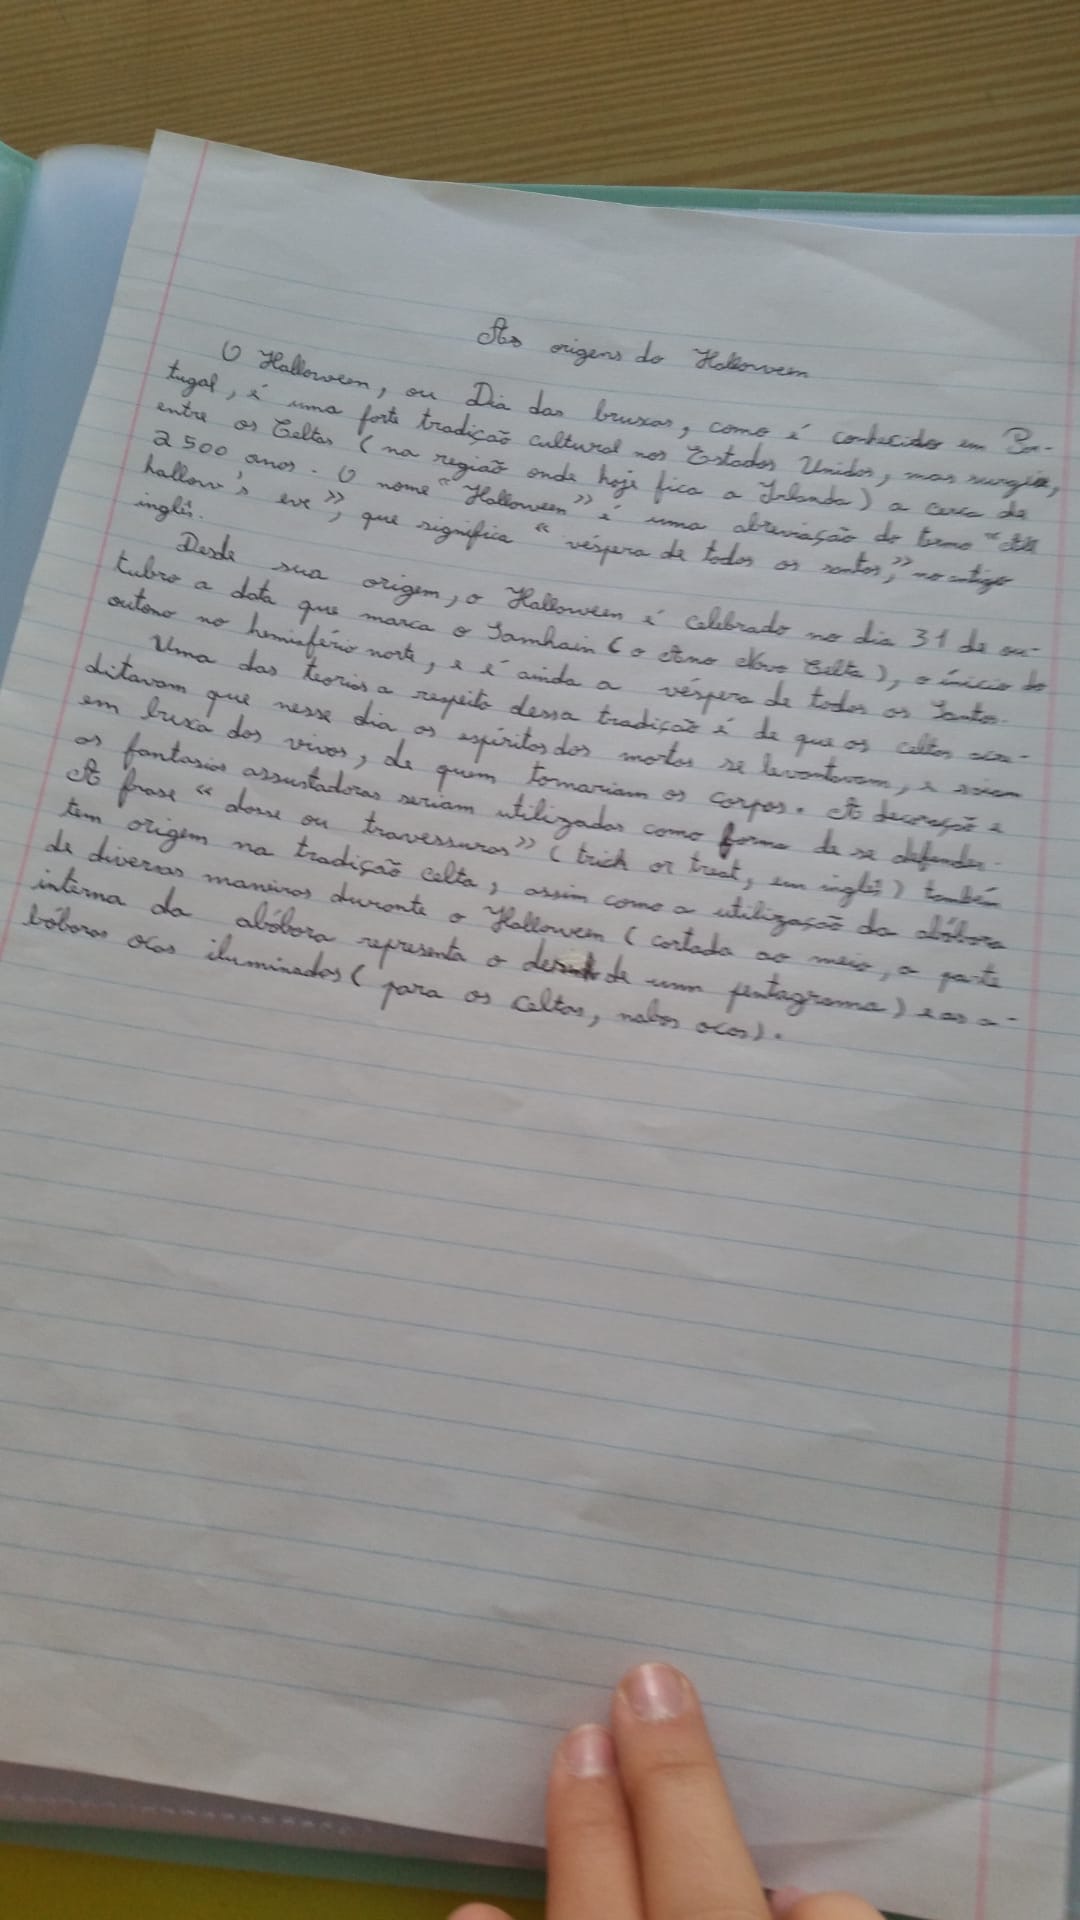 As origens do Halloween
O Halloween, ou Dia das bruxas, como é conhecido em Por-
tugal, é uma forte tradição cultural nos Estados Unidos, mas surgiu,
entre os Celtas (na região onde hoje fica a Irlanda) a cerca de
2 500 anos. O nome "Halloween" é uma abreviação do termo "All
hallow's eve", que significa "véspera de todos os santos," no antigo
inglês.
Desde sua origem, o Halloween é celebrado no dia 31 de ou-
tubro a data que marca o Samhain (o Ano Novo Celta), o início do
outono no hemisfério norte, e é ainda a véspera de todos os Santos.
Uma das teorias a respeito dessa tradição é de que os celtas acre-
ditavam que nesse dia os espíritos dos mortos se levantavam, e saiam
em busca dos vivos, de quem tomariam os corpos. A decoração e
as fantasias assustadoras seriam utilizadas como forma de se defender.
A frase "dosse ou travessuras" (trick or treat, em inglês) também
tem origem na tradição celta, assim como a utilização da abóbora
de diversas maneiras durante o Halloween (cortada ao meio, a parte
interna da abóbora representa o de um pentagrama) e as a-
bóboras ocas iluminadas (para os celtas, nabos ocos).